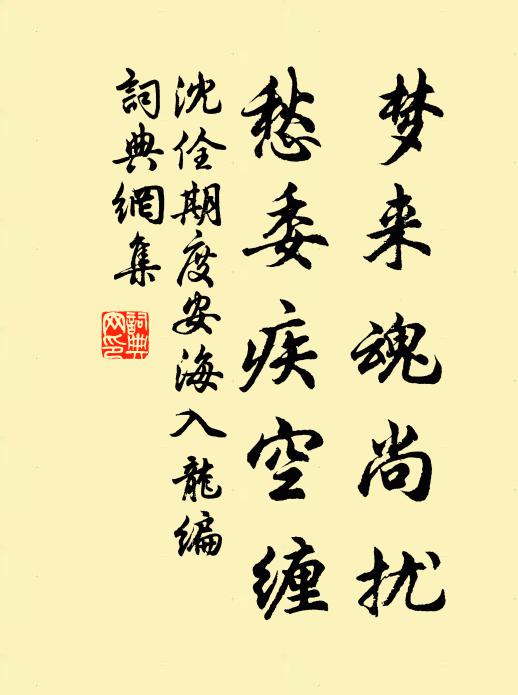 梦来魂尚扰
愁委疾空缠
沈佺期度安海入龍编
詞典網集
詞典网印